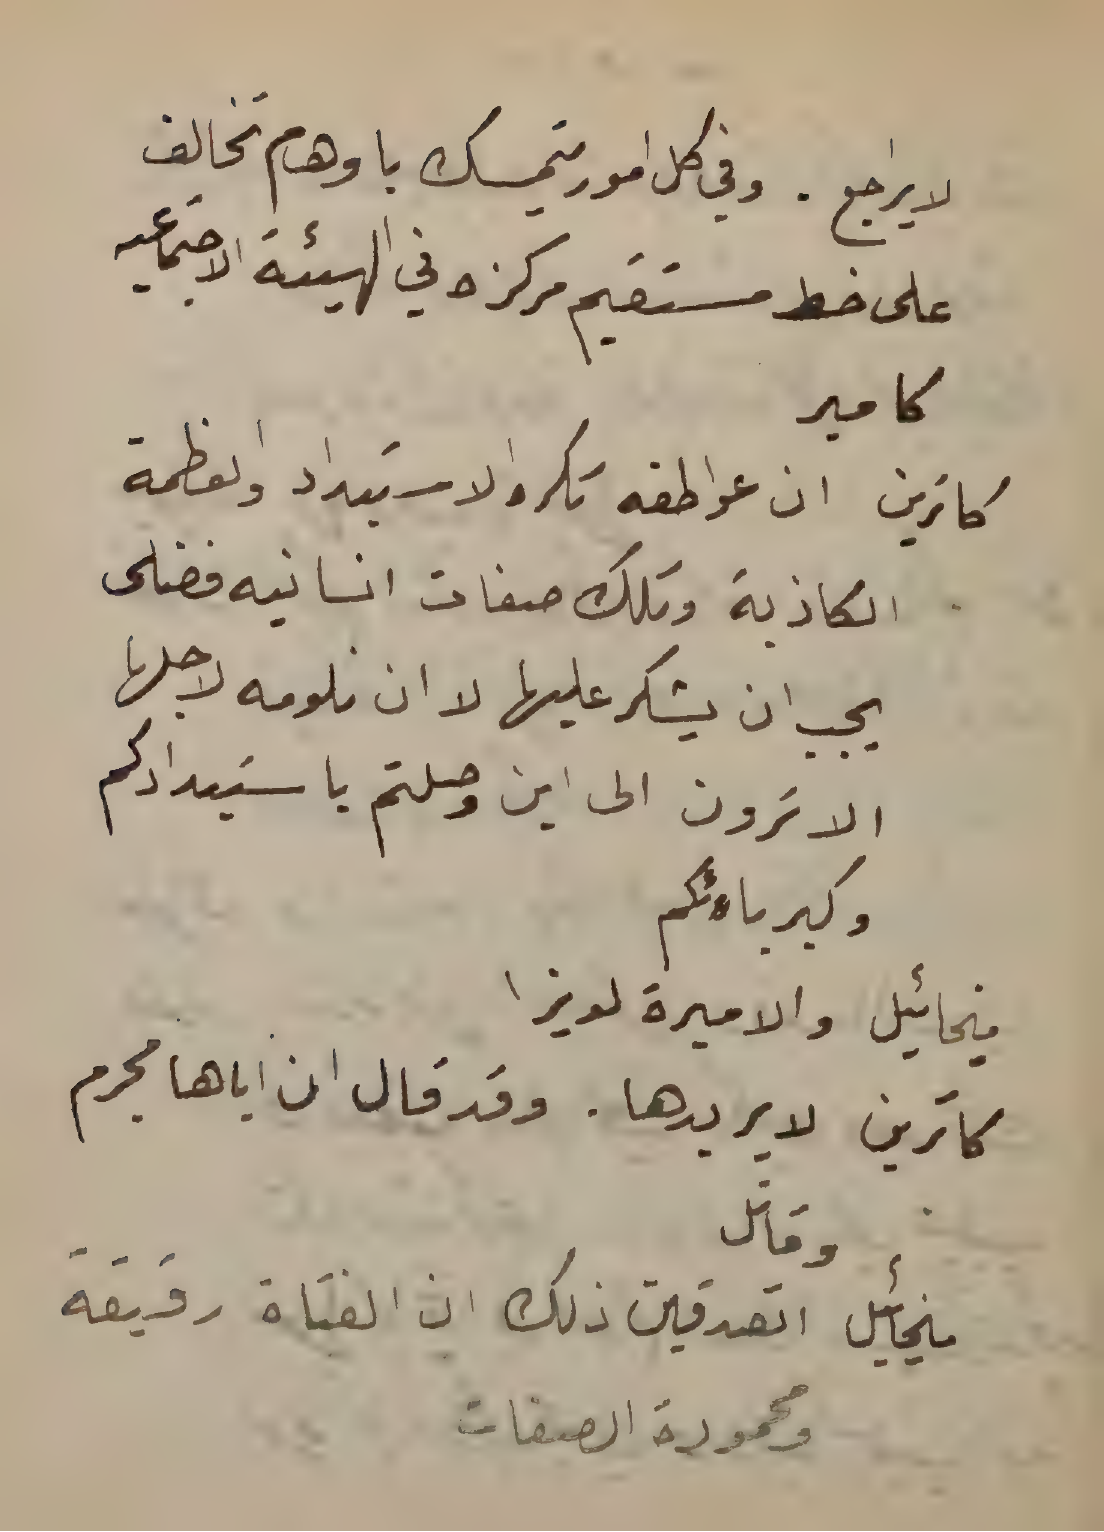 لا يراجع . وفي كل امور يتمسك باوهام تخالف
على خط مستقيم مركزه في الهيئة الاجتماعيه
كامير
كاترين ان عواطفه تكره الاستبداد والعظمة
الكاذبة وتلك صفات انسانيه فضلى
يجب ان يشكر عليها لا ان نلومه لاجلها
الا ترون الى اين وصلتم باستبدادكم
وكبرياءكم
ميخائيل والاميرة لويزا
كاترين لا يريدها . وقد قال ان اباها مجرم
وقاتل
ميخائيل اتصدقين ذلك ان الفتاة رقيقة
ومحمودة الصفات